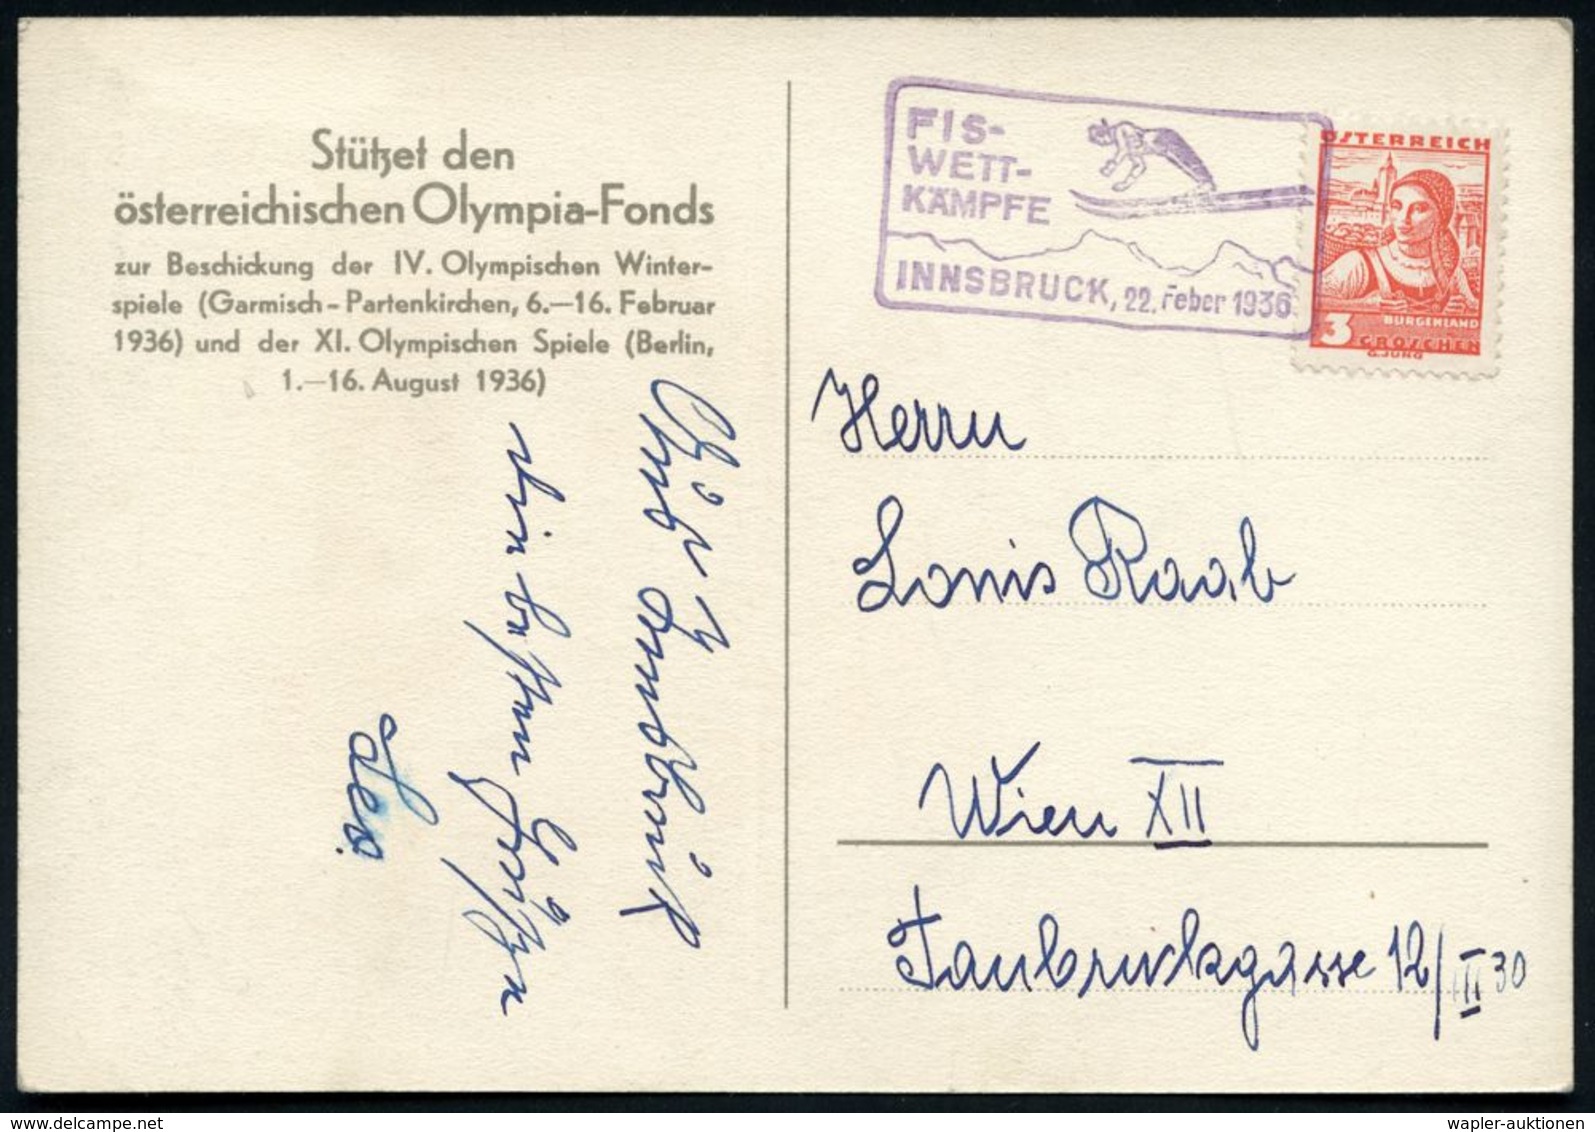 Stützet den
österreichischen Olympia-Fonds
zur Beschickung der IV. Olympischen Winter-
spiele (Garmisch-Partenkirchen, 6.—16. Februar
1936) und der XI. Olympischen Spiele (Berlin,
1.—16. August 1936)
Innsbruck
besten Grüßen
Leo.
FIS-
WETT-
KÄMPFE
INNSBRUCK, 22. Feber 1936
ÖSTERREICH
BURGENLAND
3 GROSCHEN
G. JUNG
Herrn
Louis Raab
Wien XII
Taubruckgasse 12/III 30
wapler-auktionen